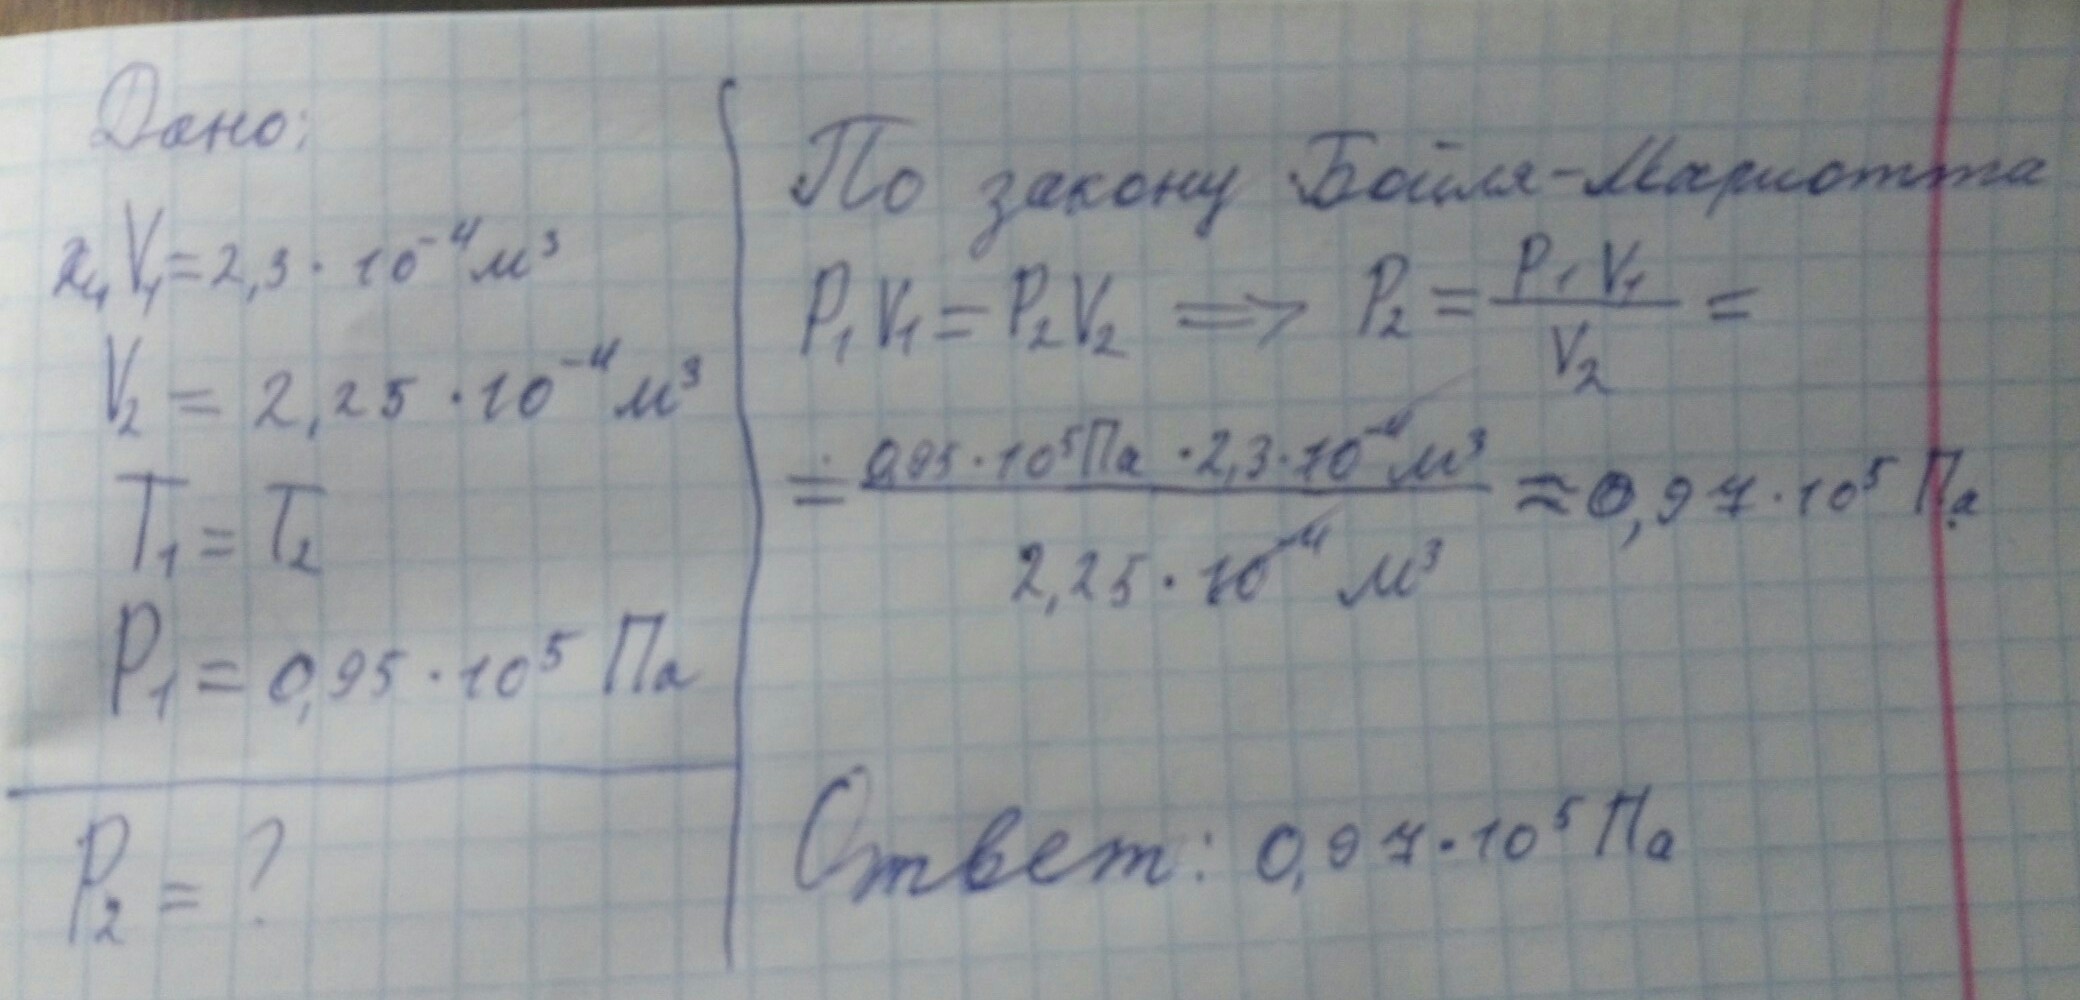 Дано:
V₁ = 2,3 · 10⁻⁴ м³
V₂ = 2,25 · 10⁻⁴ м³
T₁ = T₂
P₁ = 0,95 · 10⁵ Па
P₂ = ?
По закону Бойля-Мариотта
P₁V₁ = P₂V₂ => P₂ = P₁V₁ / V₂ =
= 0,95 · 10⁵ Па · 2,3 · 10⁻⁴ м³ / 2,25 · 10⁻⁴ м³ ≈ 0,97 · 10⁵ Па
Ответ: 0,97 · 10⁵ Па